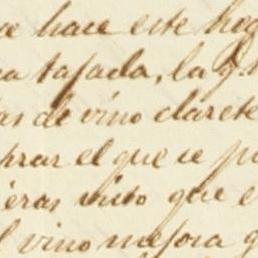 e hace este heg
a tajada, la q.
as de vino clarete
prar el que se p
ieras visto que e
l vino mejora q